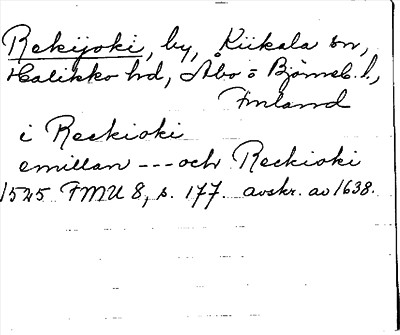 Rekijoki, by, Kiikala sn,
Halikko hd, Åbo o Björneb. l.,
Finland
i Reckioki
emillan --- och Reckioki
1545 FMU 8, s. 177. avskr. av 1638.